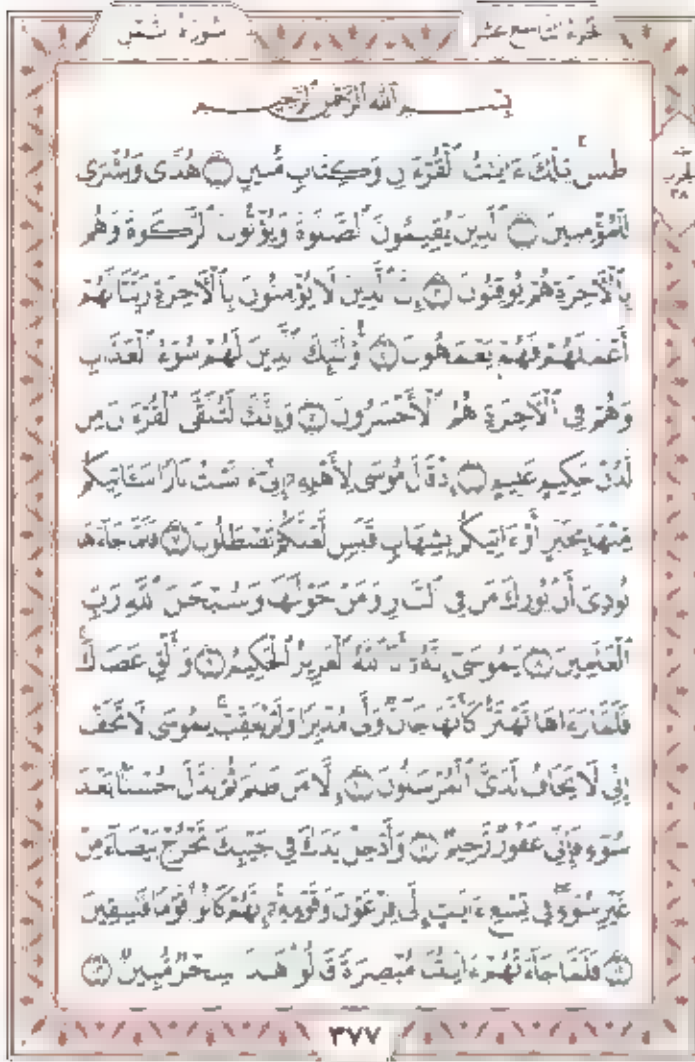 سُورَةُ النَّمْلِ
الجُزءُ التَّاسِعَ عَشَرَ
بِسْمِ ٱللَّهِ ٱلرَّحْمَٰنِ ٱلرَّحِيمِ
الحزب ٣٨
طسٓ تِلْكَ ءَايَٰتُ ٱلْقُرْءَانِ وَكِتَابٍ مُّبِينٍ ١ هُدًى وَبُشْرَىٰ
لِلْمُؤْمِنِينَ ٢ ٱلَّذِينَ يُقِيمُونَ ٱلصَّلَوٰةَ وَيُؤْتُونَ ٱلزَّكَوٰةَ وَهُم
بِٱلْأَخِرَةِ هُمْ يُوقِنُونَ ٣ إِنَّ ٱلَّذِينَ لَا يُؤْمِنُونَ بِٱلْأَخِرَةِ زَيَّنَّا لَهُمْ
أَعْمَٰلَهُمْ فَهُمْ يَعْمَهُونَ ٤ أُو۟لَٰٓئِكَ ٱلَّذِينَ لَهُمْ سُوٓءُ ٱلْعَذَابِ
وَهُمْ فِى ٱلْأَخِرَةِ هُمُ ٱلْأَخْسَرُونَ ٥ وَإِنَّكَ لَتُلَقَّى ٱلْقُرْءَانَ مِن
لَّدُنْ حَكِيمٍ عَلِيمٍ ٦ إِذْ قَالَ مُوسَىٰ لِأَهْلِهِۦٓ إِنِّىٓ ءَانَسْتُ نَارًا سَـَٔاتِيكُم
مِّنْهَا بِخَبَرٍ أَوْ ءَاتِيكُم بِشِهَابٍ قَبَسٍ لَّعَلَّكُمْ تَصْطَلُونَ ٧ فَلَمَّا جَآءَهَا
نُودِىَ أَنۢ بُورِكَ مَن فِى ٱلنَّارِ وَمَنْ حَوْلَهَا وَسُبْحَٰنَ ٱللَّهِ رَبِّ
ٱلْعَٰلَمِينَ ٨ يَٰمُوسَىٰٓ إِنَّهُۥٓ أَنَا ٱللَّهُ ٱلْعَزِيزُ ٱلْحَكِيمُ ٩ وَأَلْقِ عَصَاكَ
فَلَمَّا رَءَاهَا تَهْتَزُّ كَأَنَّهَا جَآنٌّ وَلَّىٰ مُدْبِرًا وَلَمْ يُعَقِّبْ يَٰمُوسَىٰ لَا تَخَفْ
إِنِّى لَا يَخَافُ لَدَىَّ ٱلْمُرْسَلُونَ ١٠ إِلَّا مَن ظَلَمَ ثُمَّ بَدَّلَ حُسْنًۢا بَعْدَ
سُوٓءٍ فَإِنِّى غَفُورٌ رَّحِيمٌ ١١ وَأَدْخِلْ يَدَكَ فِى جَيْبِكَ تَخْرُجْ بَيْضَآءَ مِنْ
غَيْرِ سُوٓءٍ فِى تِسْعِ ءَايَٰتٍ إِلَىٰ فِرْعَوْنَ وَقَوْمِهِۦٓ إِنَّهُمْ كَانُوا۟ قَوْمًا فَٰسِقِينَ
١٢ فَلَمَّا جَآءَتْهُمْ ءَايَٰتُنَا مُبْصِرَةً قَالُوا۟ هَٰذَا سِحْرٌ مُّبِينٌ ١٣
٣٧٧